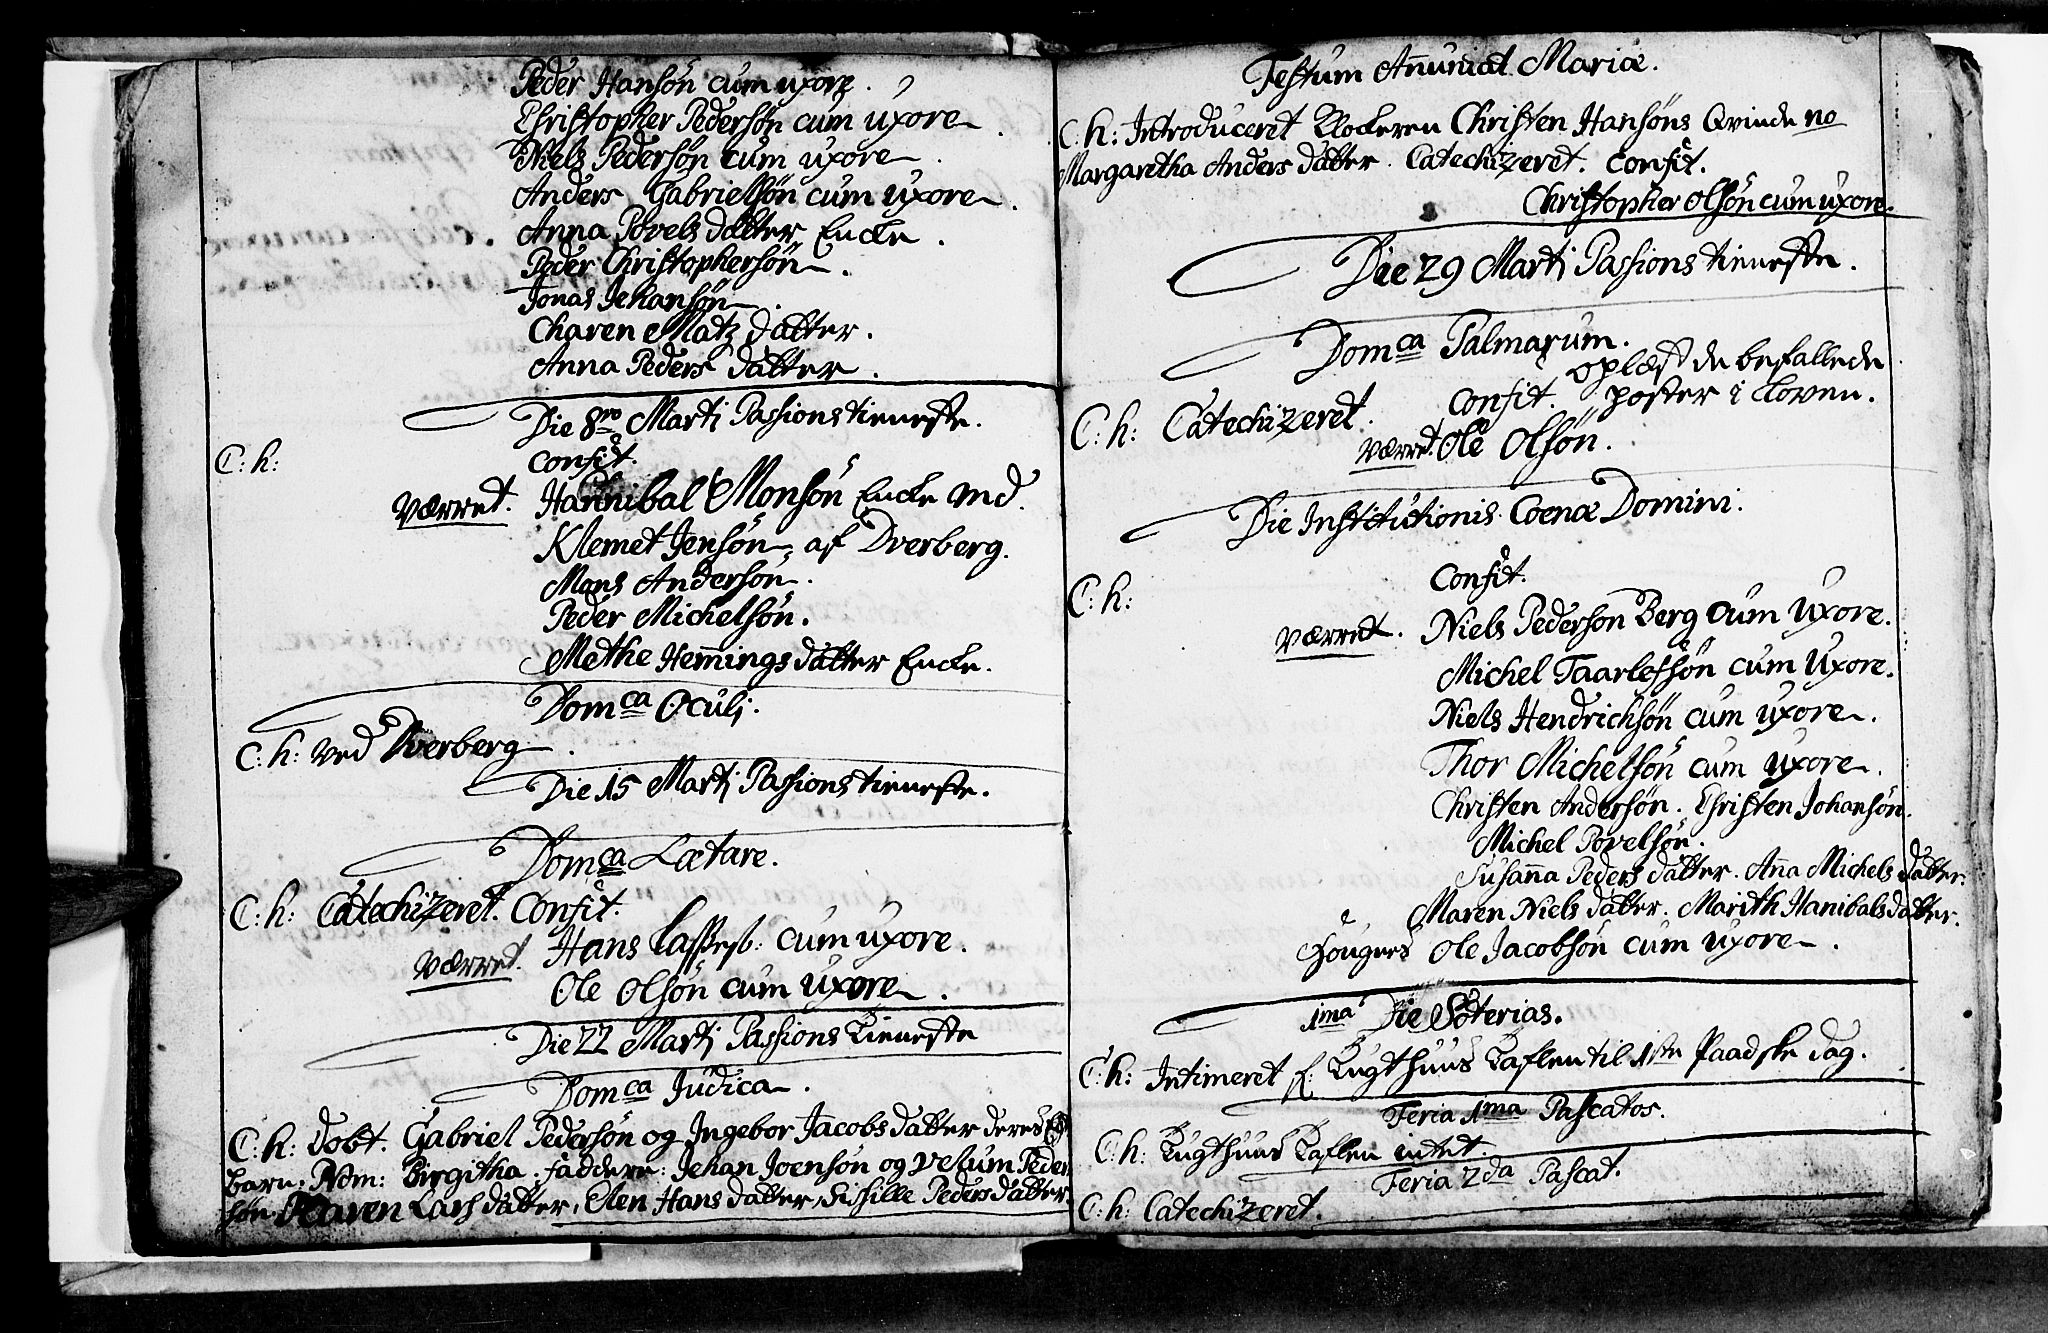 Peder Hansön cum uxore.
Christopher Pedersön cum uxore.
Niels Pedersön cum uxore.
Anders Gabrielsön cum uxore.
Anna Povels datter Encke.
Peder Christophersön.
Jonas Jehansön.
Charen Matz datter.
Anna Peders datter.
Die 8vo Martj Passions tieneste.
C: h: Confit.
Værret. Hannibal Monsön Encke md.
Klemet Jensön, af Dverberg.
Mons Andersön.
Peder Michelsön.
Methe Hem̄ings datter Encke.
Domca Oculj.
C: h: ved Dverberg.
Die 15 Martj Passions tieneste.
Domca Lætare.
C: h: Catechizeret. Confit.
Værret. Hans Lasses: cum uxore.
Ole Olsön cum uxore.
Die 22 Martj Passions tieneste
Domca Judica.
C: h: döbt. Gabriel Pedersön og Ingebor Jacobs datter deres
barn. Nom: Birgitha. faddere: Jehan Joensön og Velum Peder
sön. Karen Lars datter, Elen Hans datter, Sisille Peders datter.
Festum An̄unciat Mariæ.
C: h: Introduceret Klockeren Christen Hansöns Qvinde no
Margaretha Anders datter. Catechizeret. Confit.
Christopher Olsön cum uxore.
Die 29 Martj Passions tieneste.
Domca Palmarum.
oplæst de befallede
C: h: Catechizeret. Confit. poster i Loven.
Værret. Ole Olsön.
Die Institutionis Coenæ Domini.
C: h: Confit.
Værret. Niels Pederson Berg cum uxore.
Michel Taarlessön cum uxore.
Niels Hendrichsön cum uxore.
Thor Michelsön cum uxore.
Christen Andersön. Christen Johansön.
Michel Povelsön.
Susan̄a Peders datter. An̄a Michels datter.
Maren Niels datter. Marith Hanibals datter.
Ole Jacobsön cum uxore.
1ma Die Söterias.
C: h: Intimeret f: Tugthuus Taflen til 1ste Paadske dag.
Feria 1ma Pascatos.
C: h: Tugthuus Taflen intet.
Feria 2da Pascat.
C: h: Catechizeret.